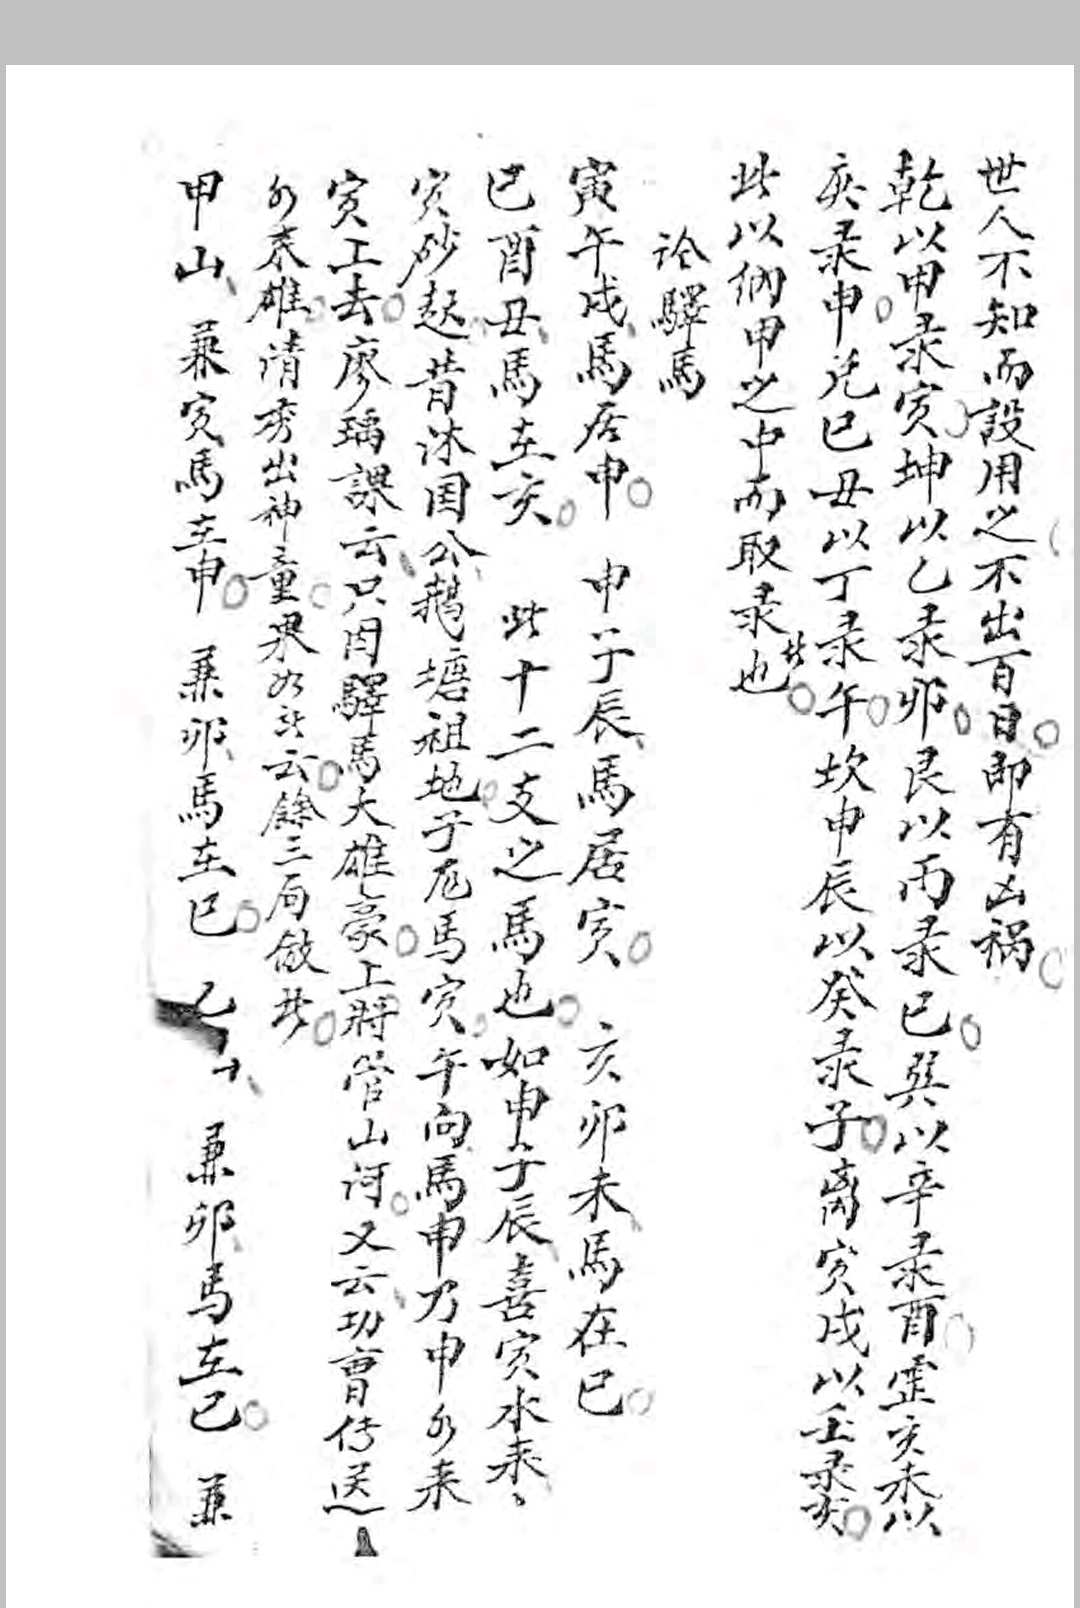 世人不知而設用之不出百日即有凶禍
乾以甲彔寅坤以乙彔卯艮以丙彔巳巽以辛彔酉震亥未以
庚彔申兑巳丑以丁彔午坎申辰以癸彔子離寅戌以壬彔亥
此以納甲之中而取彔也
論驛馬
寅午戌馬居申 申子辰馬居寅 亥卯未馬在巳
巳酉丑馬在亥 此十二支之馬也如申子辰喜寅水来
寅砂起昔沐国公鹅塘祖地子龙馬寅午向馬申乃申水来
寅上去廖瑀課云只因驛馬大雄豪上將管山河又云功曹传送
水来雄清秀出神童果如此云餘三局倣此
甲山 兼寅馬在申 兼卯馬在巳 乙山 兼卯馬在巳 兼